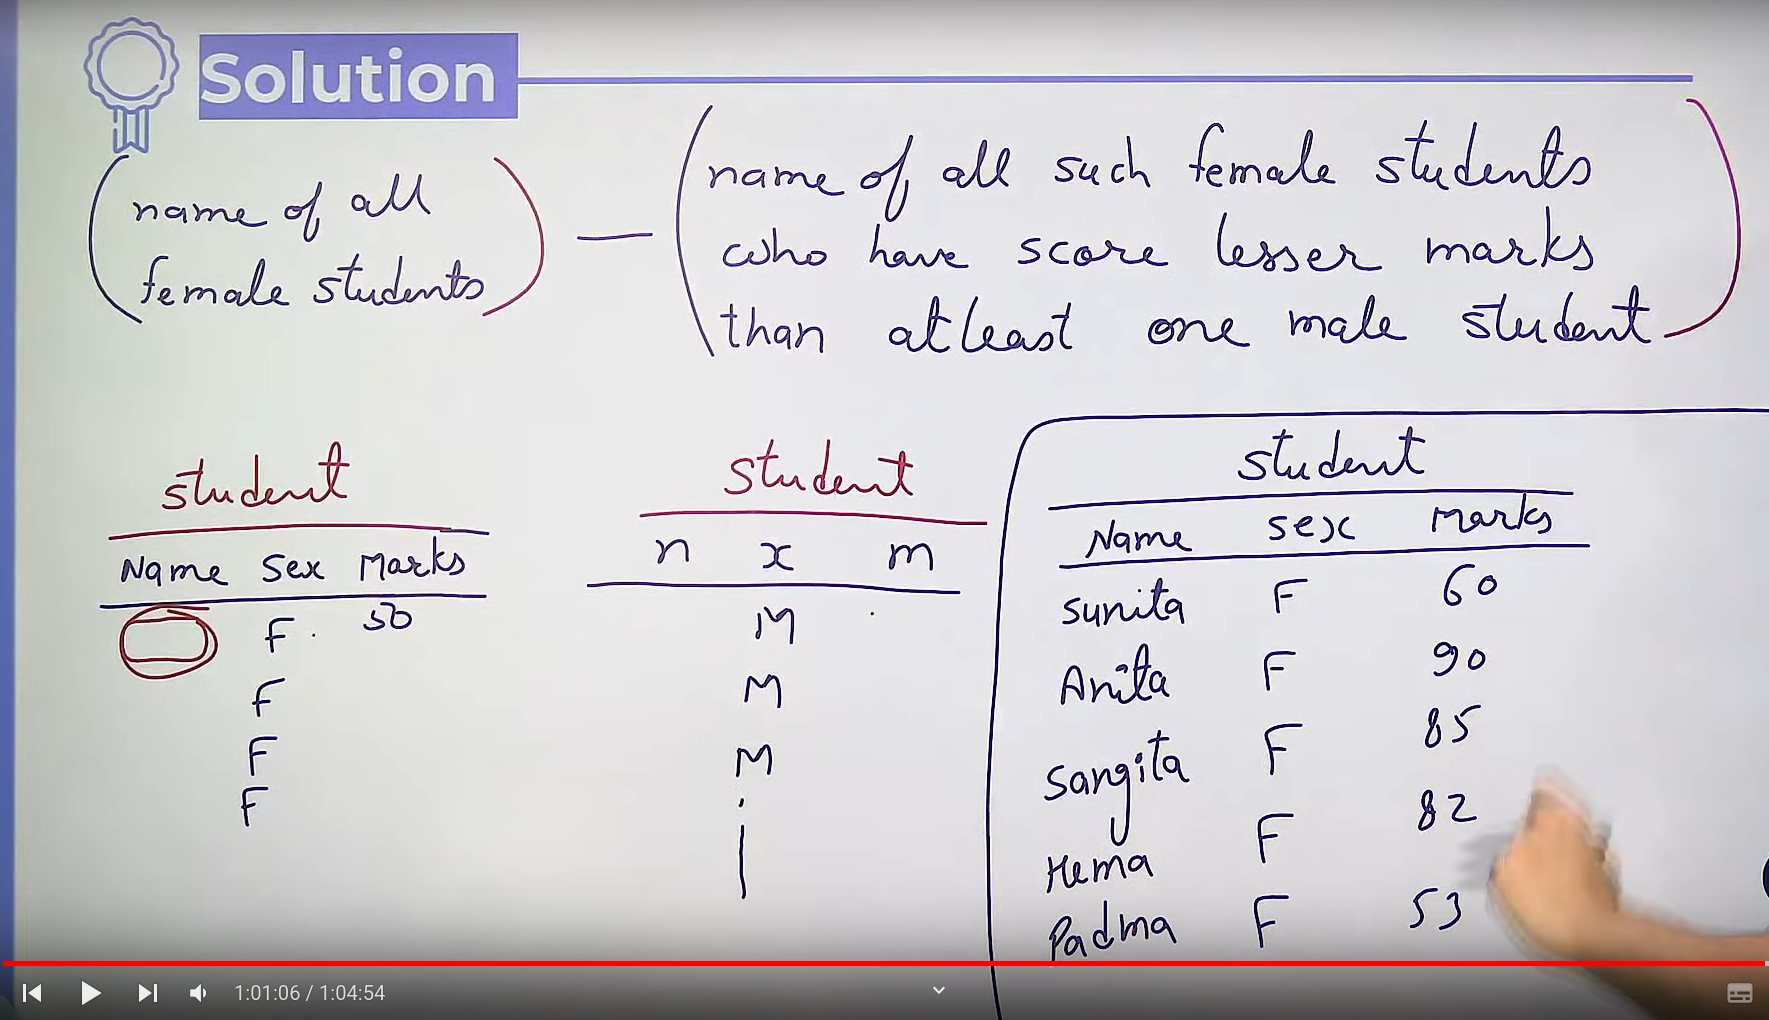 Solution
name of all
female students
—
name of all such female students
who have score lesser marks
than atleast one male student
student
Name Sex Marks
F 50
F
F
F
student
n x m
M
M
M
student
Name Sex Marks
Sunita F 60
Anita F 90
Sangita F 85
Hema F 82
Padma F 53
1:01:06 / 1:04:54